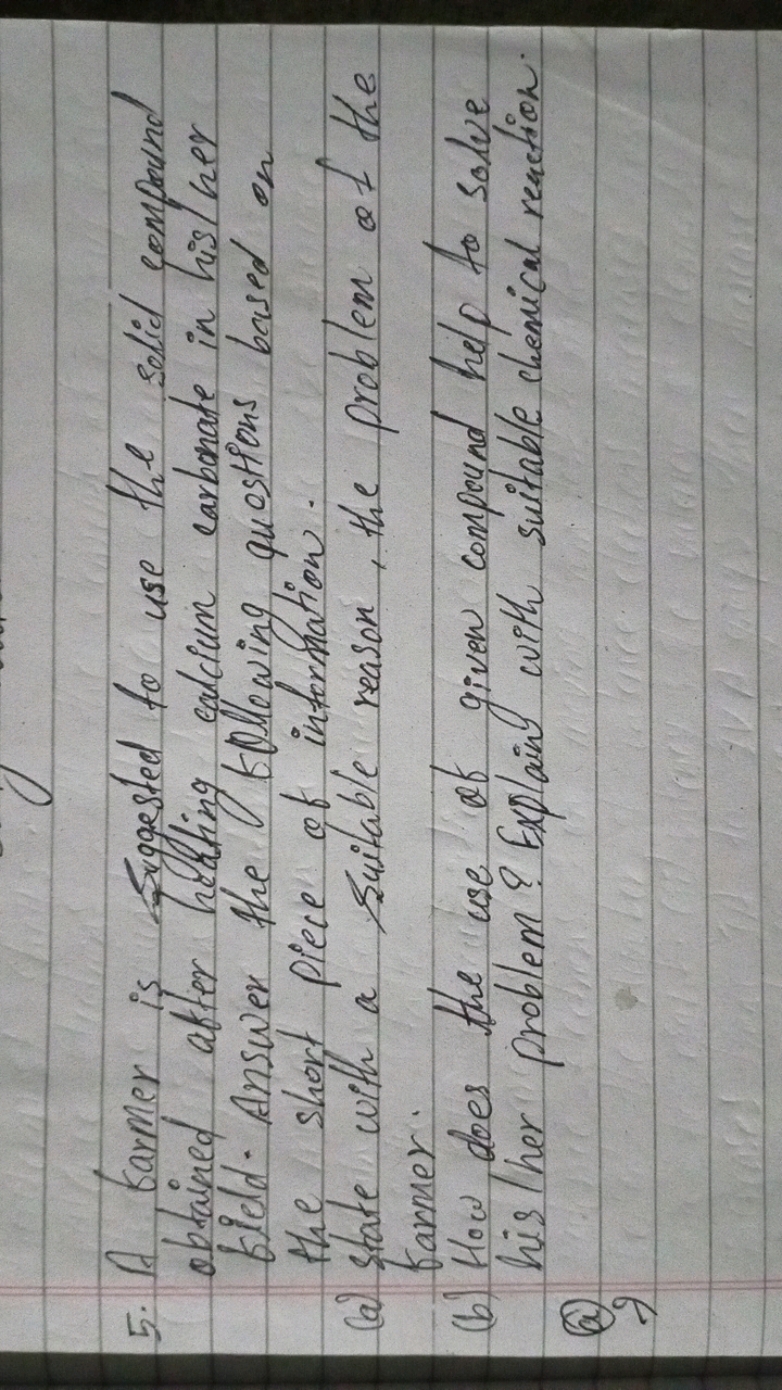 5. A farmer is suggested to use the solid compound
obtained after heating calcium carbonate in his/her
field. Answer the following questions based on
the short piece of information.
(a) state with a suitable reason, the problem of the
farmer.
(b) How does the use of given compound help to solve
his/her problem? Explain with suitable chemical reaction.
(a)